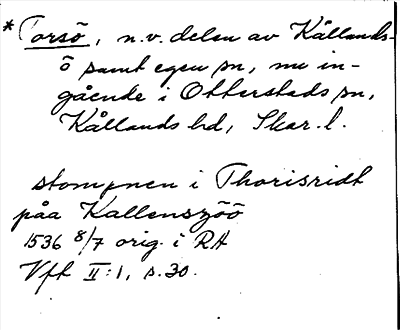 *Torsö, n.v. delen av Kållands-
ö samt egen sn, nu in-
gående i Otterstads sn,
Kållands hd, Skar. l.
stompnen i Thorisridt
påa Kallenszöö
1536 8/7 orig. i RA
Vfh II:1, s. 30.